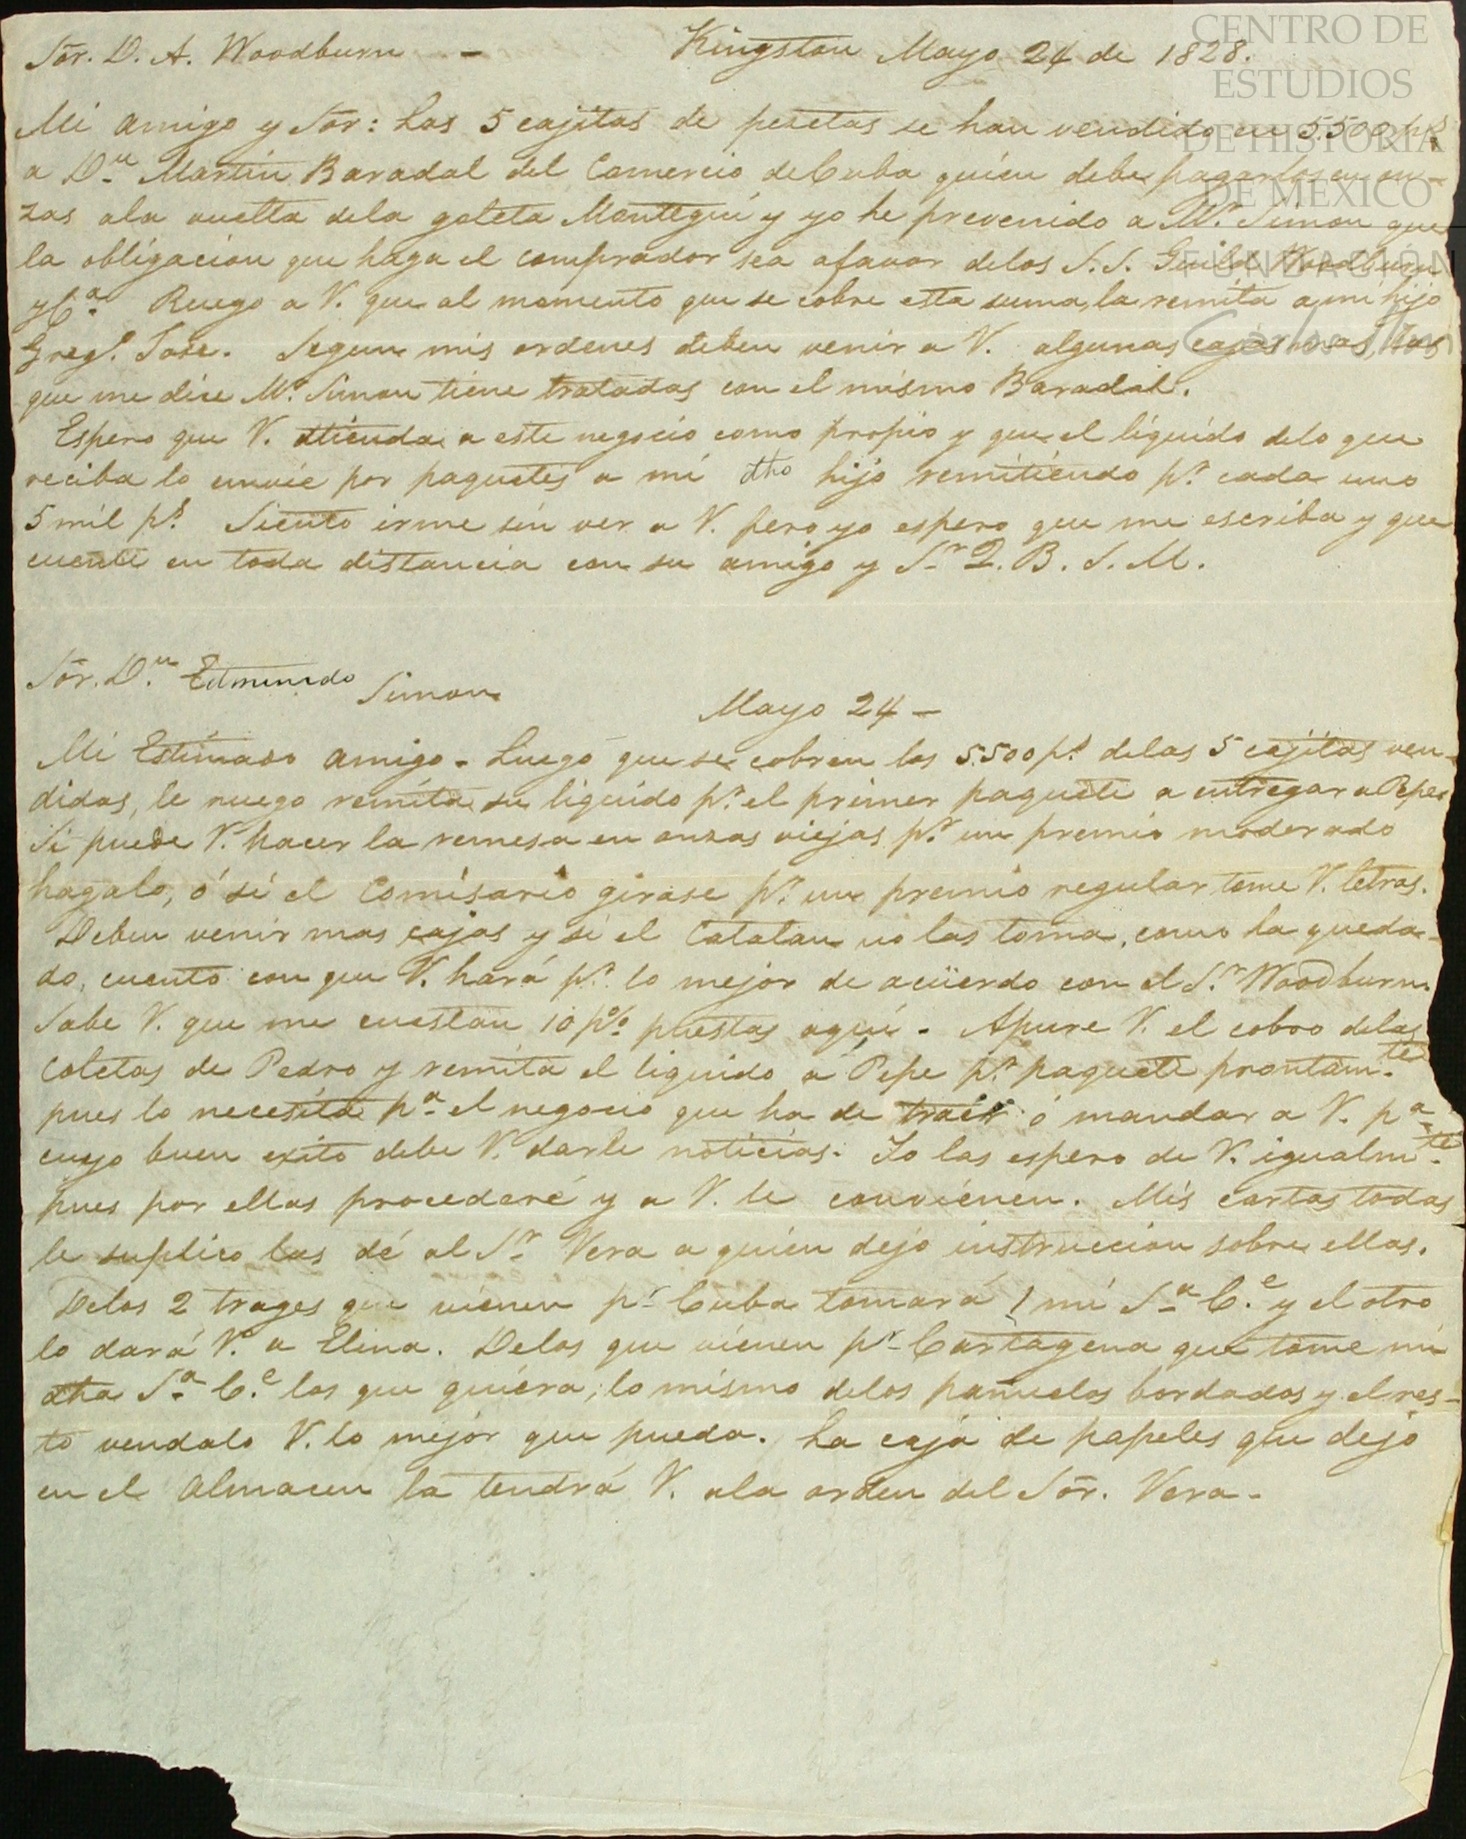 CENTRO DE
ESTUDIOS
DE HISTORIA
DE MÉXICO
FUNDACIÓN
Carlos Slim
Sõr. D. A. Woodburn - Kingston Mayo 24 de 1828.
Mi amigo y Sõr: Las 5 cajitas de pesetas se han vendido en 5.500 p.s
a D.n Martin Baradal del Comercio de Cuba quien debe pagarlos en on-
zas ala vuelta dela goleta Mantegui y yo he prevenido a M.r Simon que
la obligacion que haga el comprador sea afavor delos S.S. Guill.o Woodburn
y C.a Ruego a V. que al momento que se cobre esta suma, la remita a mi hijo
Greg.o Jose. Segun mis ordenes deben venir a V. algunas cajas mas, las
que me dice M.r Simon tiene tratadas con el mismo Baradal.
Espero que V. atienda a este negocio como propio y que el liquido delo que
reciba lo envie por paquetes a mi dho hijo remitiendo p.r cada uno
5 mil p.s Siento irme sin ver a V. pero yo espero que me escriba y que
cuente en toda distancia con su amigo y S.r Q. B. S. M.
Sõr. D.n Edmundo Simon
Mayo 24 -
Mi Estimado amigo. Luego que se cobren los 5.500 p.s delas 5 cajitas ven-
didas, le ruego remita su liquido p.r el primer paquete a entregar a Pepe.
Si puede V. hacer la remesa en onzas viejas p.r un premio moderado
hagalo, ó si el Comisario girase p.r un premio regular tome V. letras.
Deben venir mas cajas y si el Catalan no las toma, como ha queda-
do, cuento con que V. hará p.r lo mejor de acüerdo con el S.r Woodburn.
Sabe V. que me cuestan 10 p% puestas aqui. Apure V. el cobro delas
Coletas de Pedro y remita el liquido á Pepe p.r paquete prontam.te
pues lo necesita p.a el negocio que ha de traér ó mandar a V. p.a
cuyo buen exito debe V. darle noticias. Yo las espero de V. igualm.te
pues por ellas procederé y a V. le convienen. Mis cartas todas
le suplico las dé al S.r Vera a quien dejo instruccion sobre ellas.
Delos 2 trages que vienen p.r Cuba tomará 1 mi S.a C.e y el otro
lo dará V. a Elina. Delos que vienen p.r Cartagena que tome mi
dha S.a C.e los que quiera, lo mismo delos pañuelos bordados y el res-
to vendalo V. lo mejor que pueda. La caja de papeles que dejo
en el almacen la tendrá V. ala orden del Sõr. Vera.